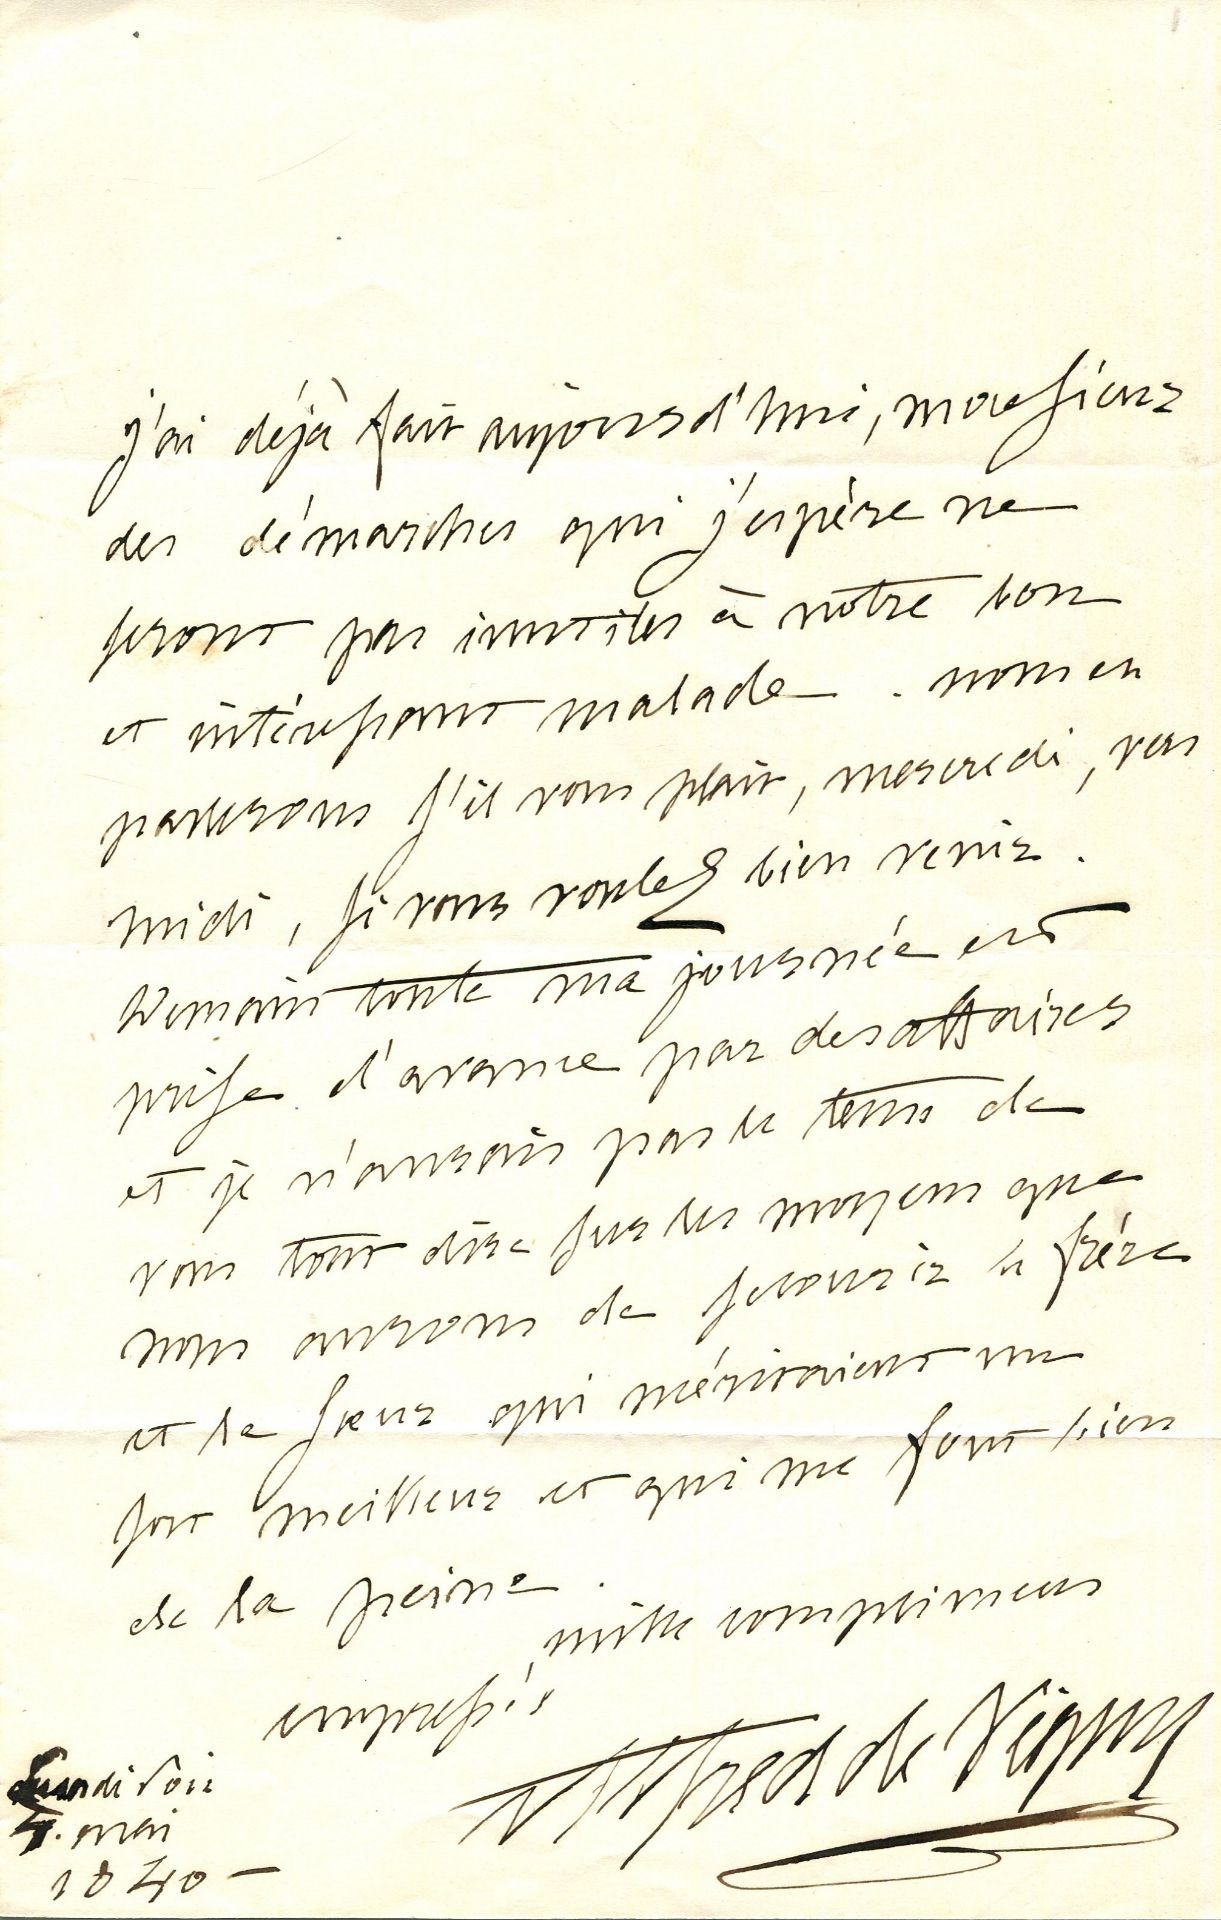 j'ai déjà fait aujourd'hui, monsieur
des démarches qui j'espère ne
seront pas inutiles à notre bon
et intéressant malade. nous en
parlerons s'il vous plait, mercredi, vers
midi, si vous voulez bien venir.
Demain toute ma journée est
prise d'avance par des affaires
et je n'aurais pas le tems de
vous tout dire sur les moyens que
nous aurons de secourir le frère
et la sœur qui méritaient un
sort meilleur et qui me font bien
de la peine.
mille complimens
empressés
Alfred de Vigny
Lundi soir
4. mai
1840 –